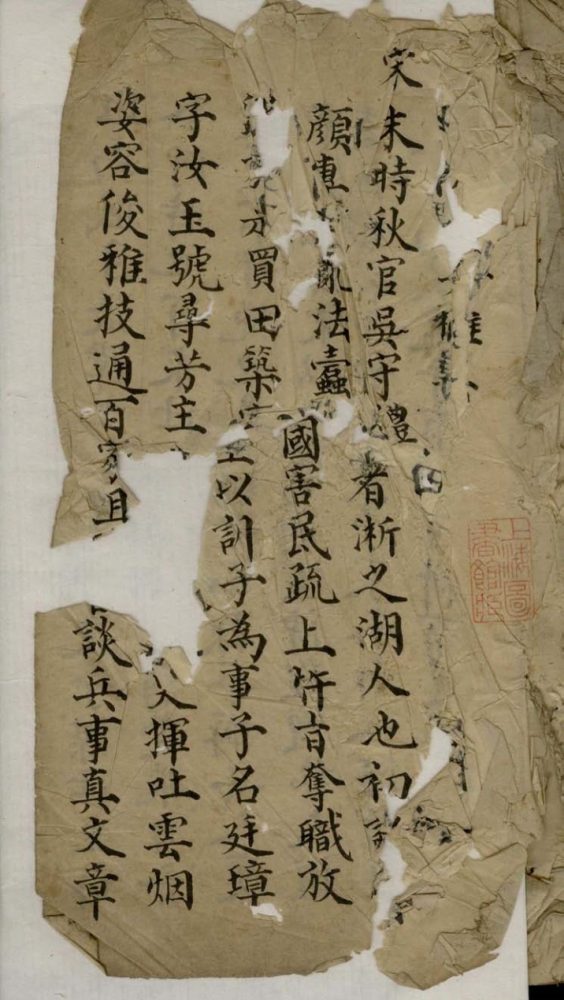 宋末時秋官吳守禮者淅之湖人也初
顏亂法蠹國害民疏上忤旨奪職放
買田築室以訓子為事子名廷璋
字汝玉號尋芳主揮吐雲烟
姿容俊雅技通百家且談兵事真文章
上海圖書館藏